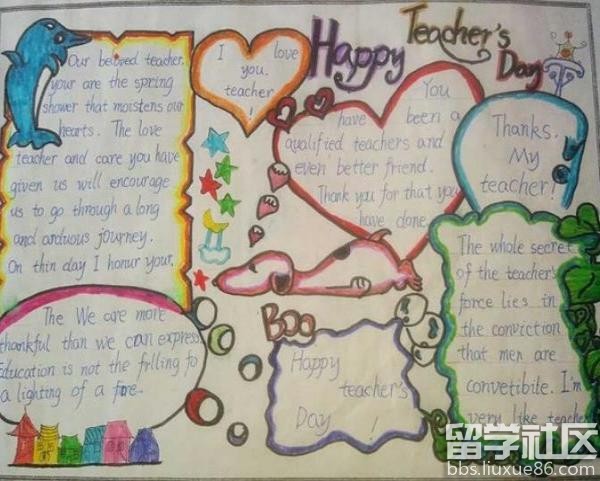 Happy Teacher's
Day
Our beloved teacher,
your are the spring
shower that moistens our
hearts. The love
teacher and care you have
given us will encourage
us to go through a long
and arduous journey.
On thin day I honur your.
I love
you,
teacher
!
You
have been a
qualified teachers and
even better friend.
Thank you for that you
have done
Thanks,
My
teacher!
The whole secret
of the teacher's
force lies in
the conviction
that men are
convetibite. I'm
very like teacher
The We are more
thankful than we can express
Education is not the frlling fo
a lighting of a fire.
Boo
Happy
teacher's
Day !
留学社区
bbs.liuxue86.com